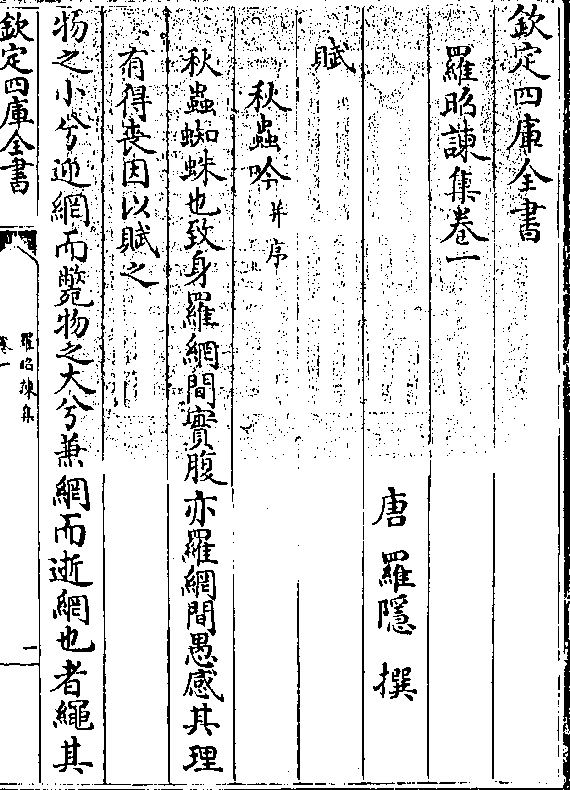 欽定四庫全書
羅昭諫集卷一
唐 羅隱 撰
賦
秋蟲吟并序
秋蟲蜘蛛也致身羅網間實腹亦羅網間愚感其理
有得喪因以賦之
物之小兮迎網而斃物之大兮兼網而逝網也者繩其
欽定四庫全書
羅昭諫集
卷一
一